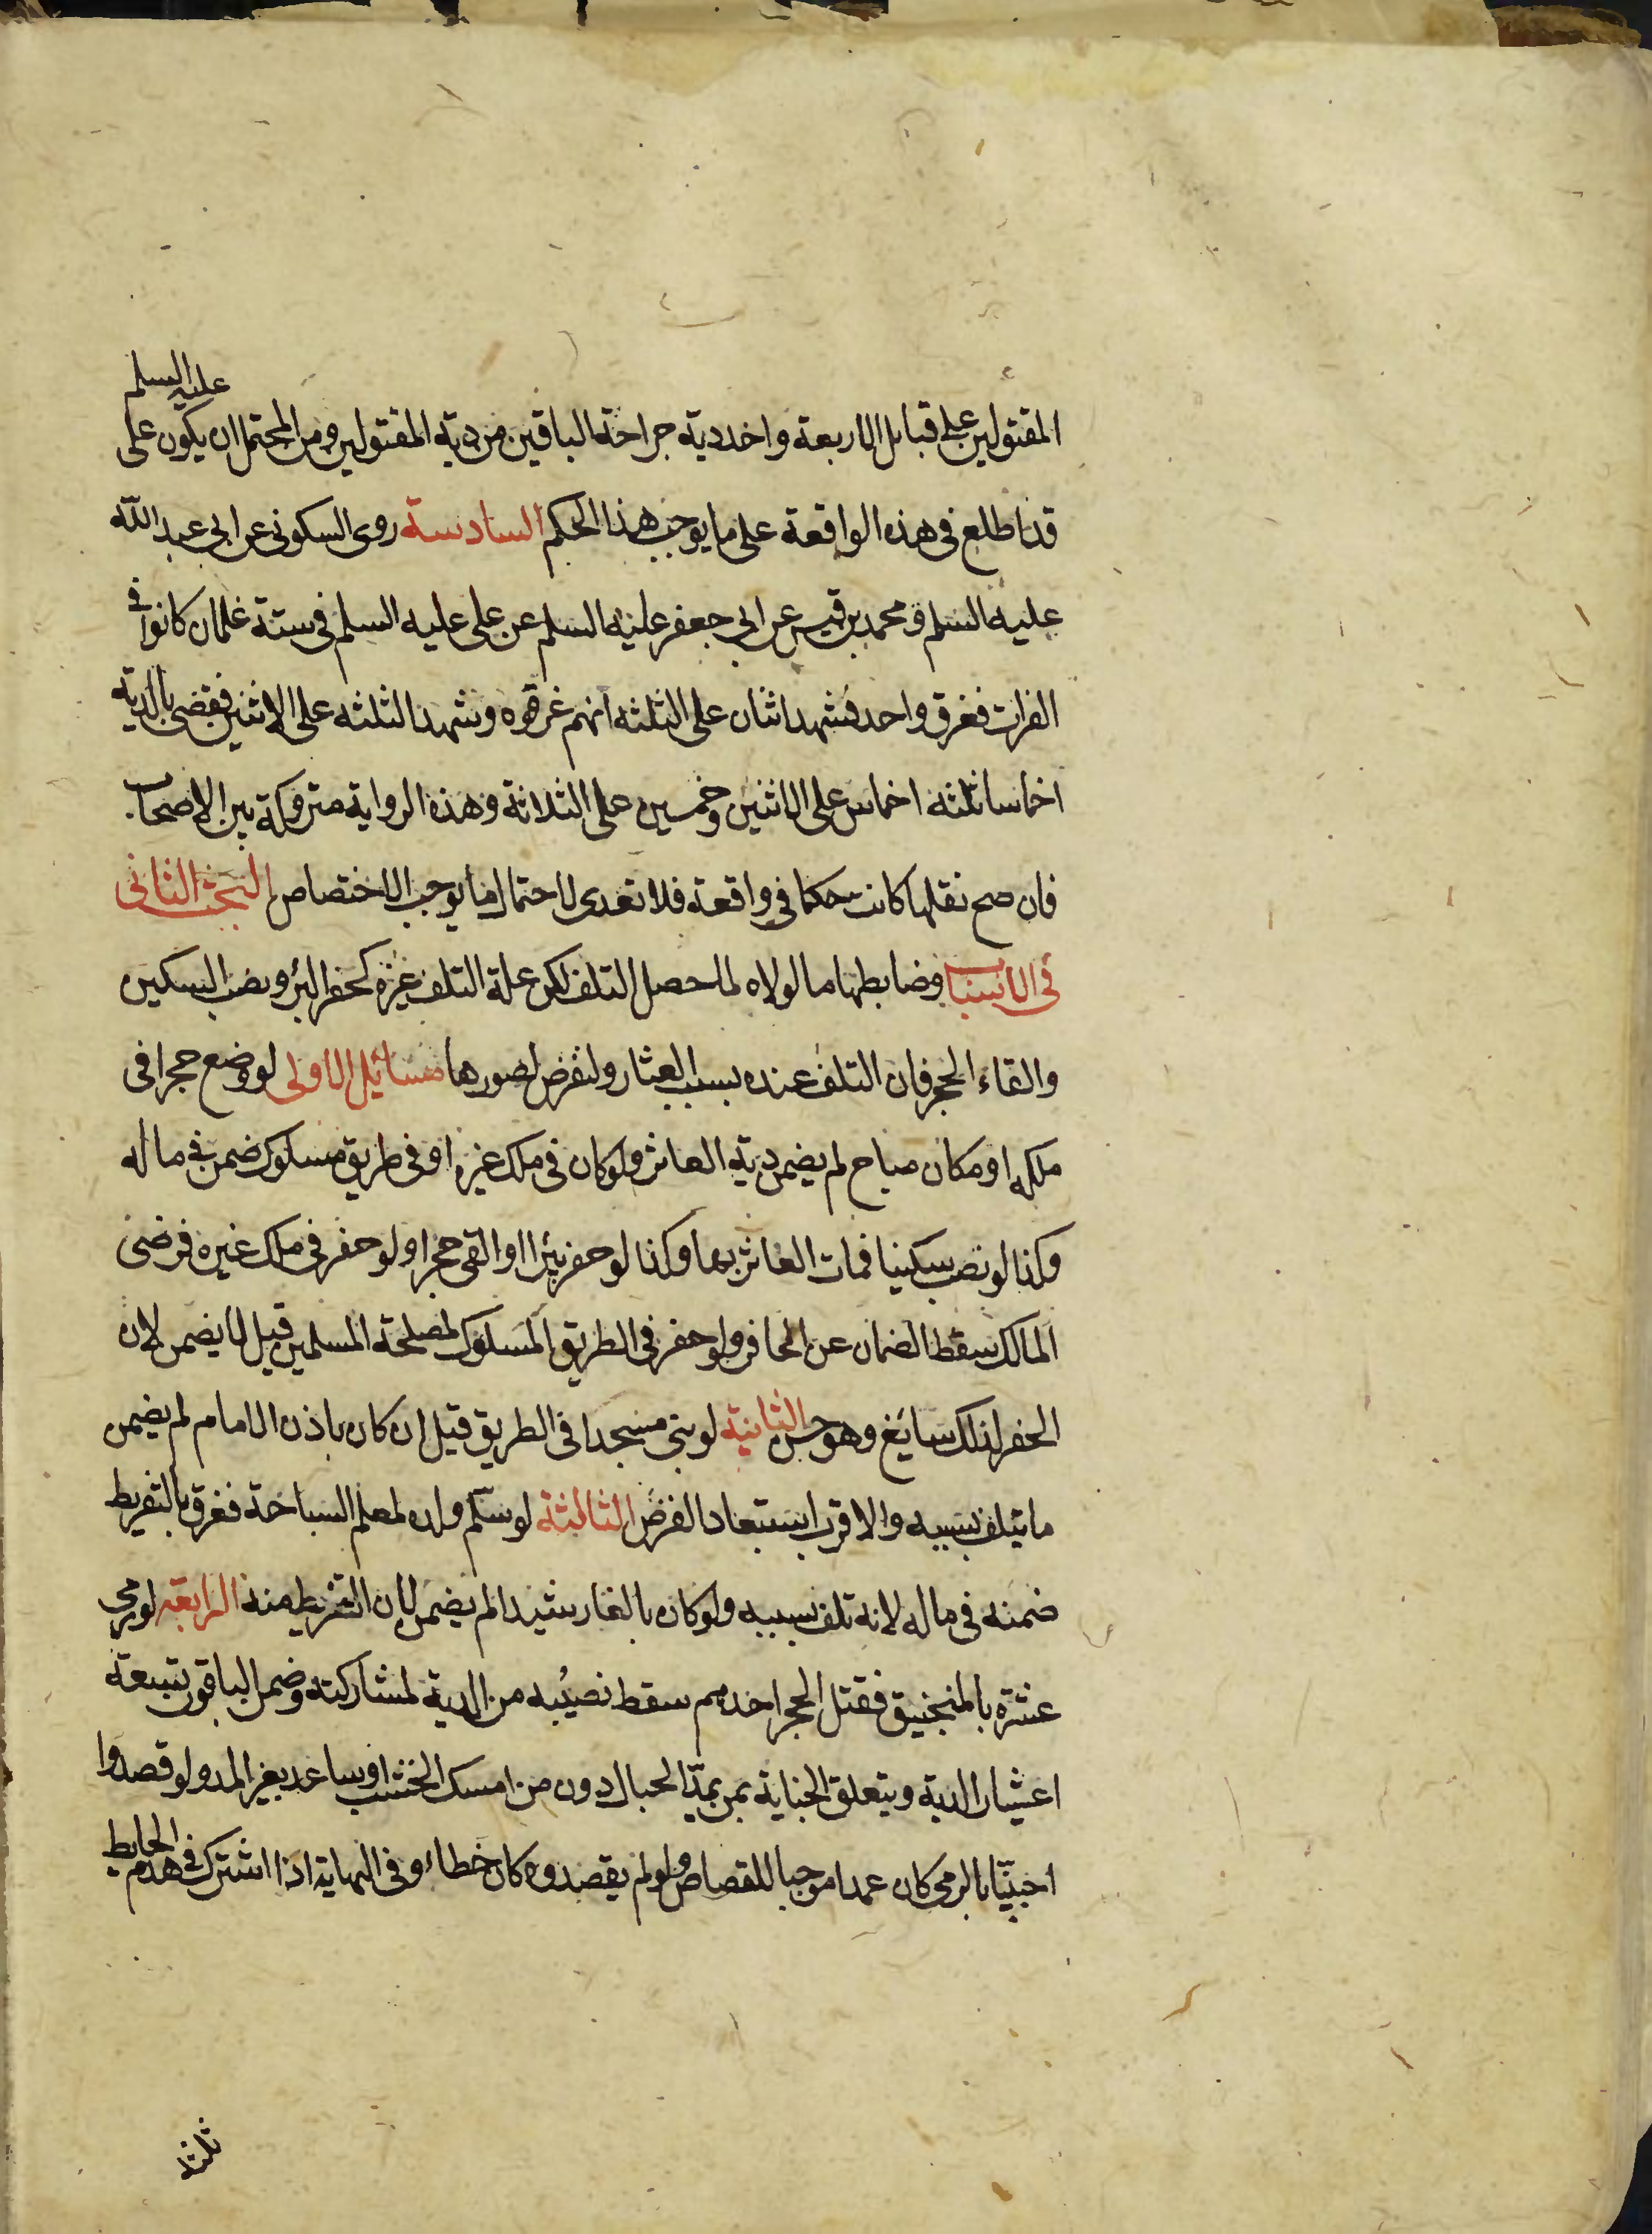 المقتولين على قبايل الاربعة واخذ دية جراحة الباقين من دية المقتولين ومن المحتمل ان يكون على عليه السلم
قد اطلع فى هذه الواقعة على ما يوجب هذا الحكم السادسة روى السكونى عن ابى عبد الله
عليه السلم ومحمد بن قيس عن ابى جعفر عليه السلم عن على عليه السلم فى ستة غلمان كانوا فى
الفرات فغرق واحد فشهد اثنان على الثلثه انهم غرقوه وشهد الثلثه على الاثنين فقضى بالدية
اخماسا ثلثه اخماس على الاثنين وخمسين على الثلاثة وهذه الرواية متروكة بين الاصحاب
فان صح نقلها كانت حكما فى واقعة فلا تعدى لاحتمال ما يوجب الاختصاص البحث الثانى
فى الاسباب وضابطها ما لولاه لما حصل التلف لكن علة التلف غيره كحفر البئر ونصب السكين
والقاء الحجر فان التلف عنده بسبب العثار ولنفرض لصورها مسائل الاولى لو وضع حجرا فى
ملكه او مكان مباح لم يضمن دية العاثر ولو كان فى ملك غيره او فى طريق مسلوك ضمن فى ماله
وكذا لو نصب سكينا فمات العاثر بها وكذا لو حفر بئرا او القى حجرا ولو حفر فى ملك غيره فرضى
المالك سقط الضمان عن الحافر ولو حفر فى الطريق المسلوك لمصلحة المسلمين قيل لا يضمن لان
الحفر لذلك سايغ وهو حسن الثانية لو بنى مسجدا فى الطريق قيل ان كان باذن الامام لم يضمن
ما يتلف بسببه والاقرب استبعاد الفرض الثالثة لو سلّم ولده لمعلم السباحة فغرق بالتفريط
ضمنه فى ماله لانه تلف بسببه ولو كان بالغا رشيدا لم يضمن لان التفريط منه الرابعة لو رمى
عشرة بالمنجنيق فقتل الحجر احدهم سقط نصيبه من الدية لمشاركته وضمن الباقون تسعة
اعشار الدية ويتعلق الجناية بمن يمدّ الحبال دون من امسك الخشب او ساعد بغير المد ولو قصدوا
اجنبيّا بالرمى كان عمدا موجبا للقصاص ولو لم يقصدوه كان خطاء وفى النهاية اذا اشترك فى هدم الحايط
ثلثة